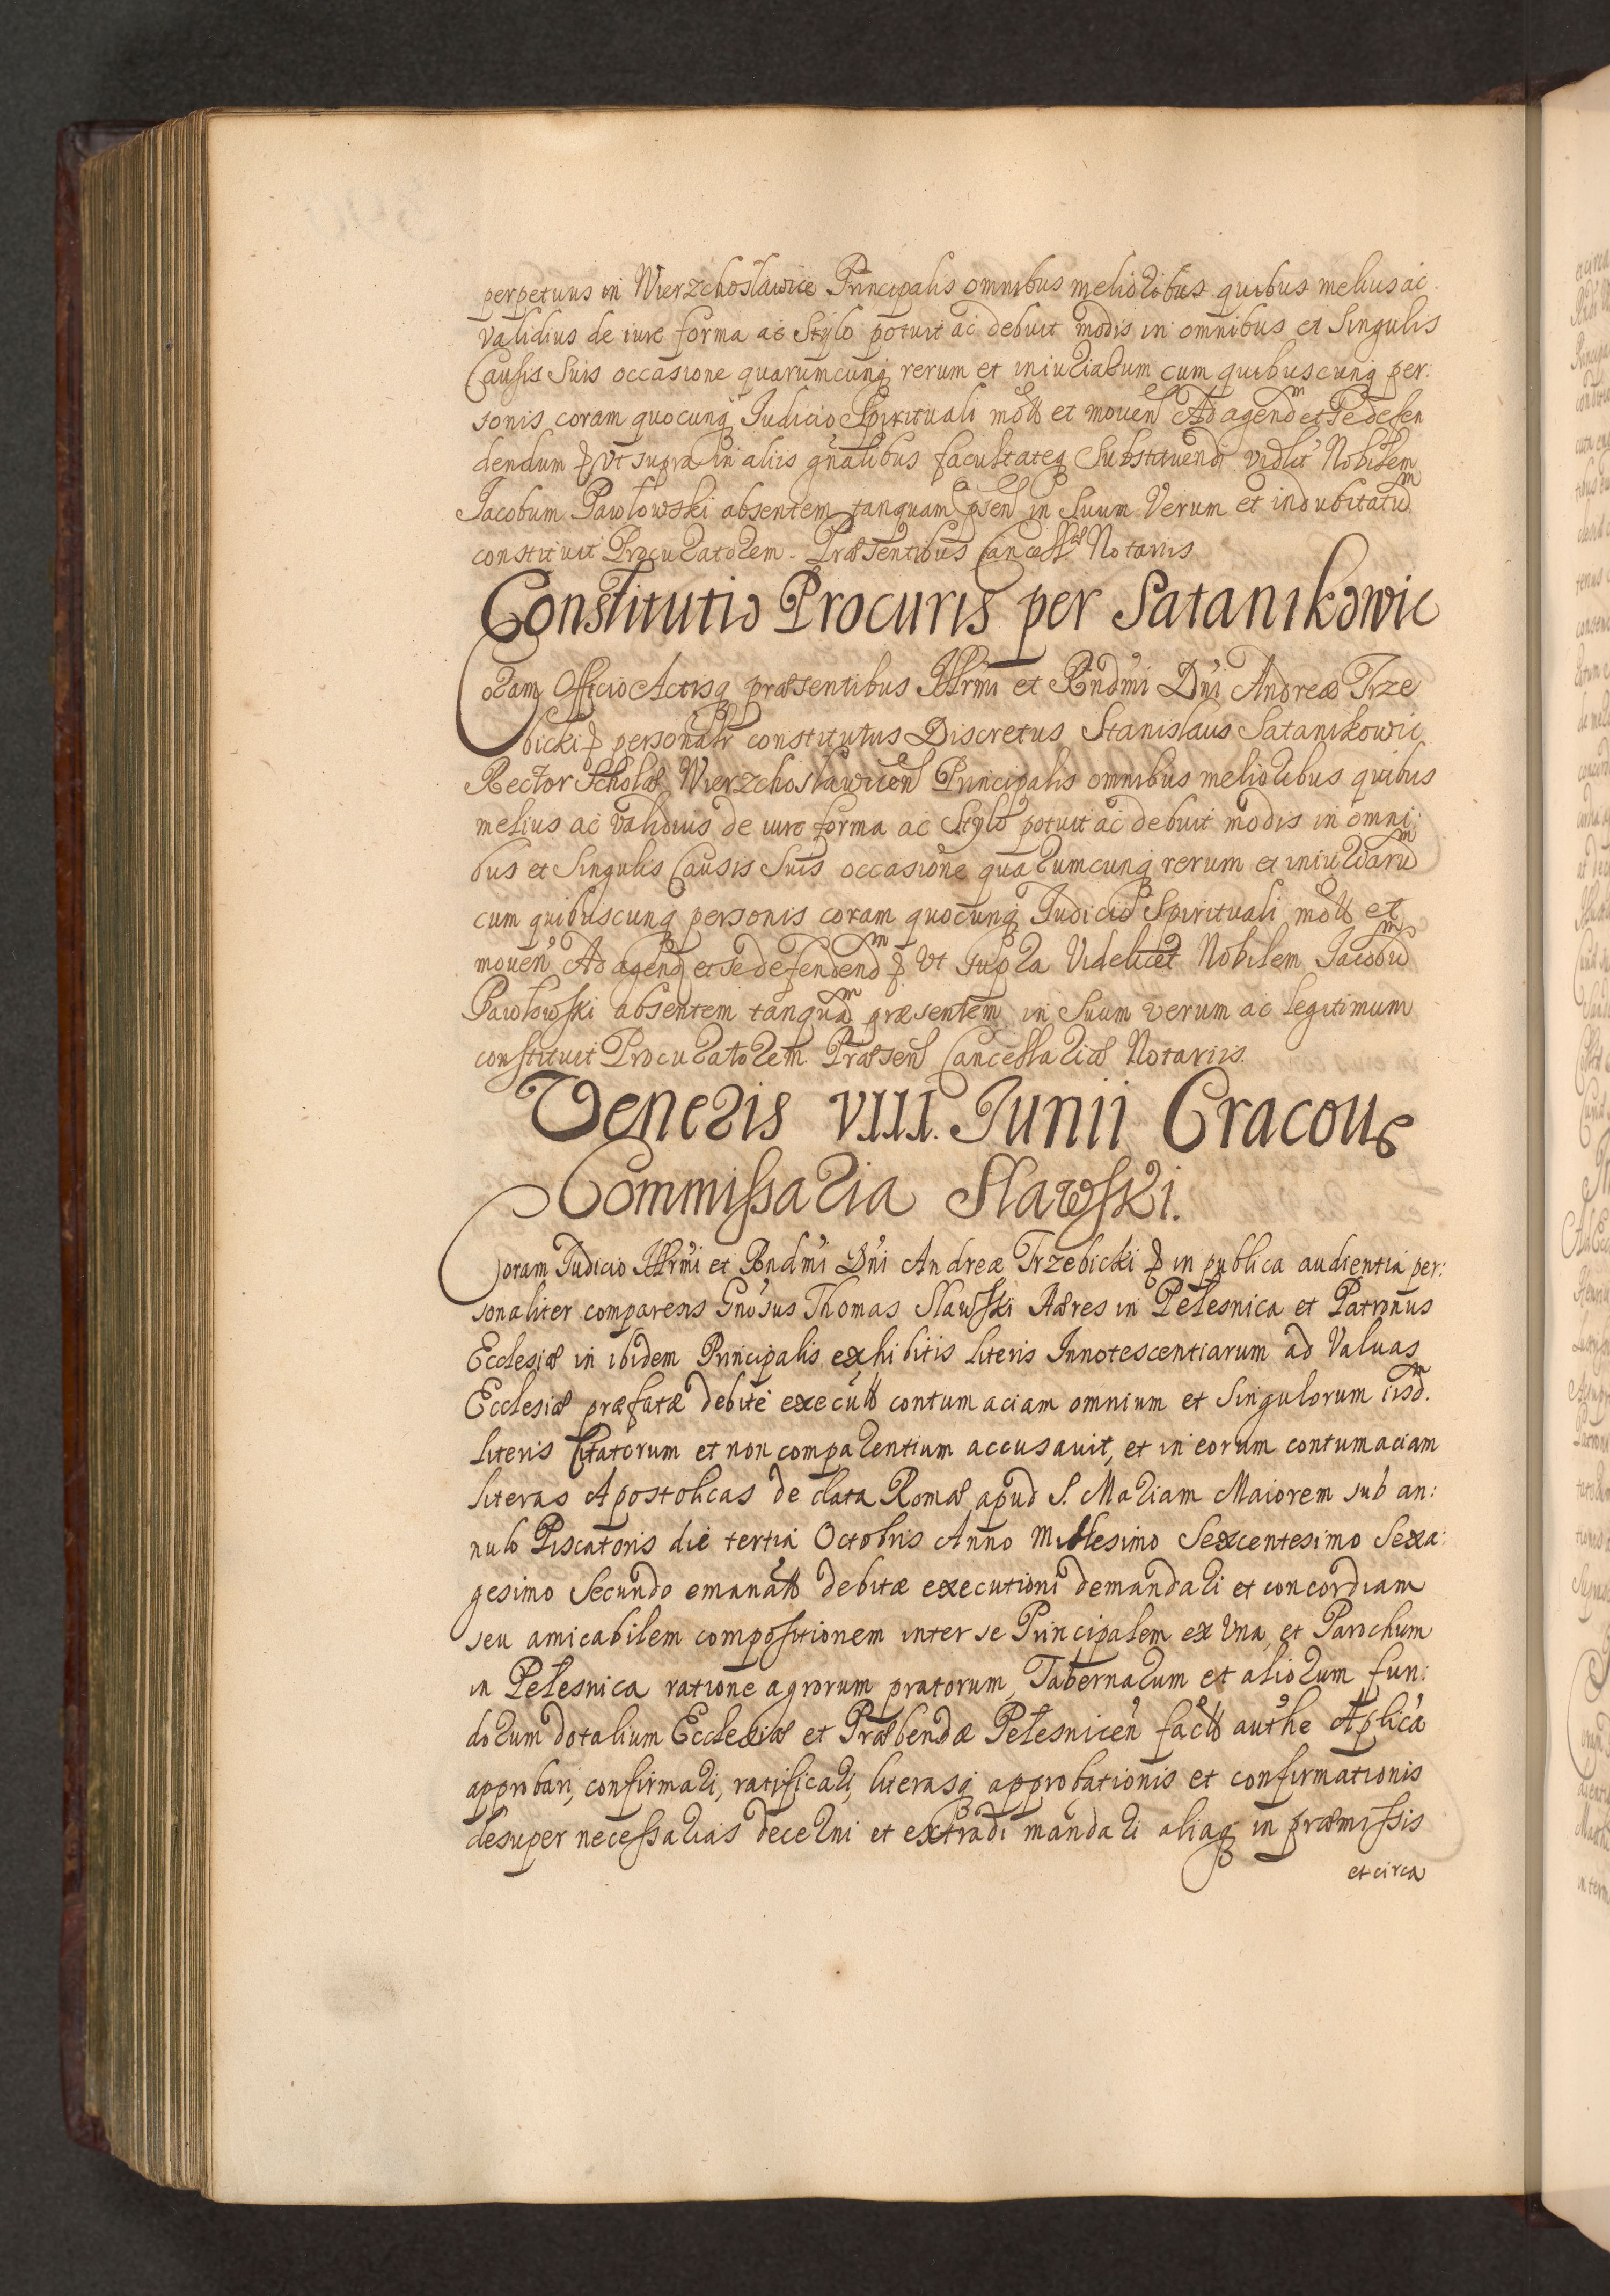 perpetuus in Wierzchosławice Principalis omnibus melioribus quibus melius ac
validius de iure forma ac Stylo potuit ac debuit modis in omnibus et Singulis
Causis Suis occasione quarumcunq rerum et iniuriarum cum quibuscunq per:
sonis coram quocunq Iudicio Spirituali mott et mouen Ad agendm et se defen
dendum & vt supra in aliis gnalibus facultateq Substituendi vidlt Nobilem
Jacobum Pawłowski absentem tanquam psen in Suum Verum et indubitatum
constituit Procuratorem. Præsentibus Cancellæ Notariis
Constitutio Procuris per Satanikowic
Coram Officio Actisq præsentibus Illrmi et Rndmi Dni Andreæ Trze
bicki & personalr constitutus Discretus Stanislaus Satanikowic
Rector Scholæ Wierzchosławicen Principalis omnibus melioribus quibus
melius ac validius de iure forma ac Stylo potuit ac debuit modis in omni
bus et Singulis Causis Suis occasione quarumcunq rerum et iniuriarum
cum quibuscunq personis coram quocunq Iudicio Spirituali mott et
mouen Ad agend et se defendendm & vt supra Videlicet Nobilem Jacobum
Pawłowski absentem tanquam præsentem in Suum verum ac legitimum
constituit Procuratorem Præsen Cancellariæ Notariis.
Veneris VIII. Junii Cracouæ
Commissaria Sławski.
Coram Iudicio Illrmi et Rndmi Dni Andreæ Trzebicki & in publica audientia per:
sonaliter comparens Gnosus Thomas Sławski Hæres in Pełesnica et Patronus
Ecclesiæ in ibidem Principalis exhibitis literis Innotescentiarum ad Valuas
Ecclesiæ præfatæ debite executt contumaciam omnium et Singulorum iisdm.
literis Citatorum et non comparentium accusauit, et in eorum contumaciam
literas Apostolicas de data Romæ apud S. Mariam Maiorem sub an:
nulo Piscatoris die tertia Octobris Anno Millesimo Sexcentesimo Sexa:
gesimo Secundo emanatt debitæ executioni demandari et concordiam
seu amicabilem compositionem inter se Principalem ex Vna, et Parochum
in Pełesnica ratione agrorum pratorum, Tabernarum et aliorum fun:
dorum dotalium Ecclesiæ et Præbendæ Pełesnicen factt authe Aplica
approbari, confirmari, ratificari, literasq approbationis et confirmationis
desuper necessarias decerni et extradi mandari aliaq in præmissis
et circa